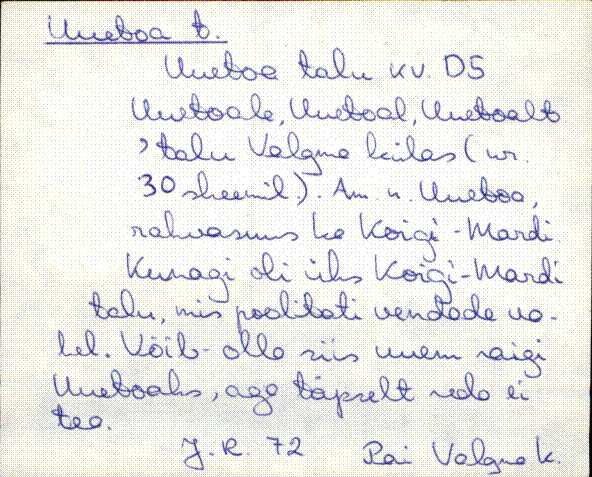 Uuetoa t.
Uuetoa talu KV. D5
Uuetoale, Uuetoal, Uuetoalt
, talu Valgma külas (nr.
30 skeemil.). Am. n. Uuetoa,
rahvasuus ka Koigi-Mardi.
Kunagi oli üks Koigi-Mardi
talu, mis poolitati vendade va-
hel. Võib-olla siis uuem saigi
Uuetoaks, aga täpselt seda ei
tea.
J. R. 72 Pai Valgma k.